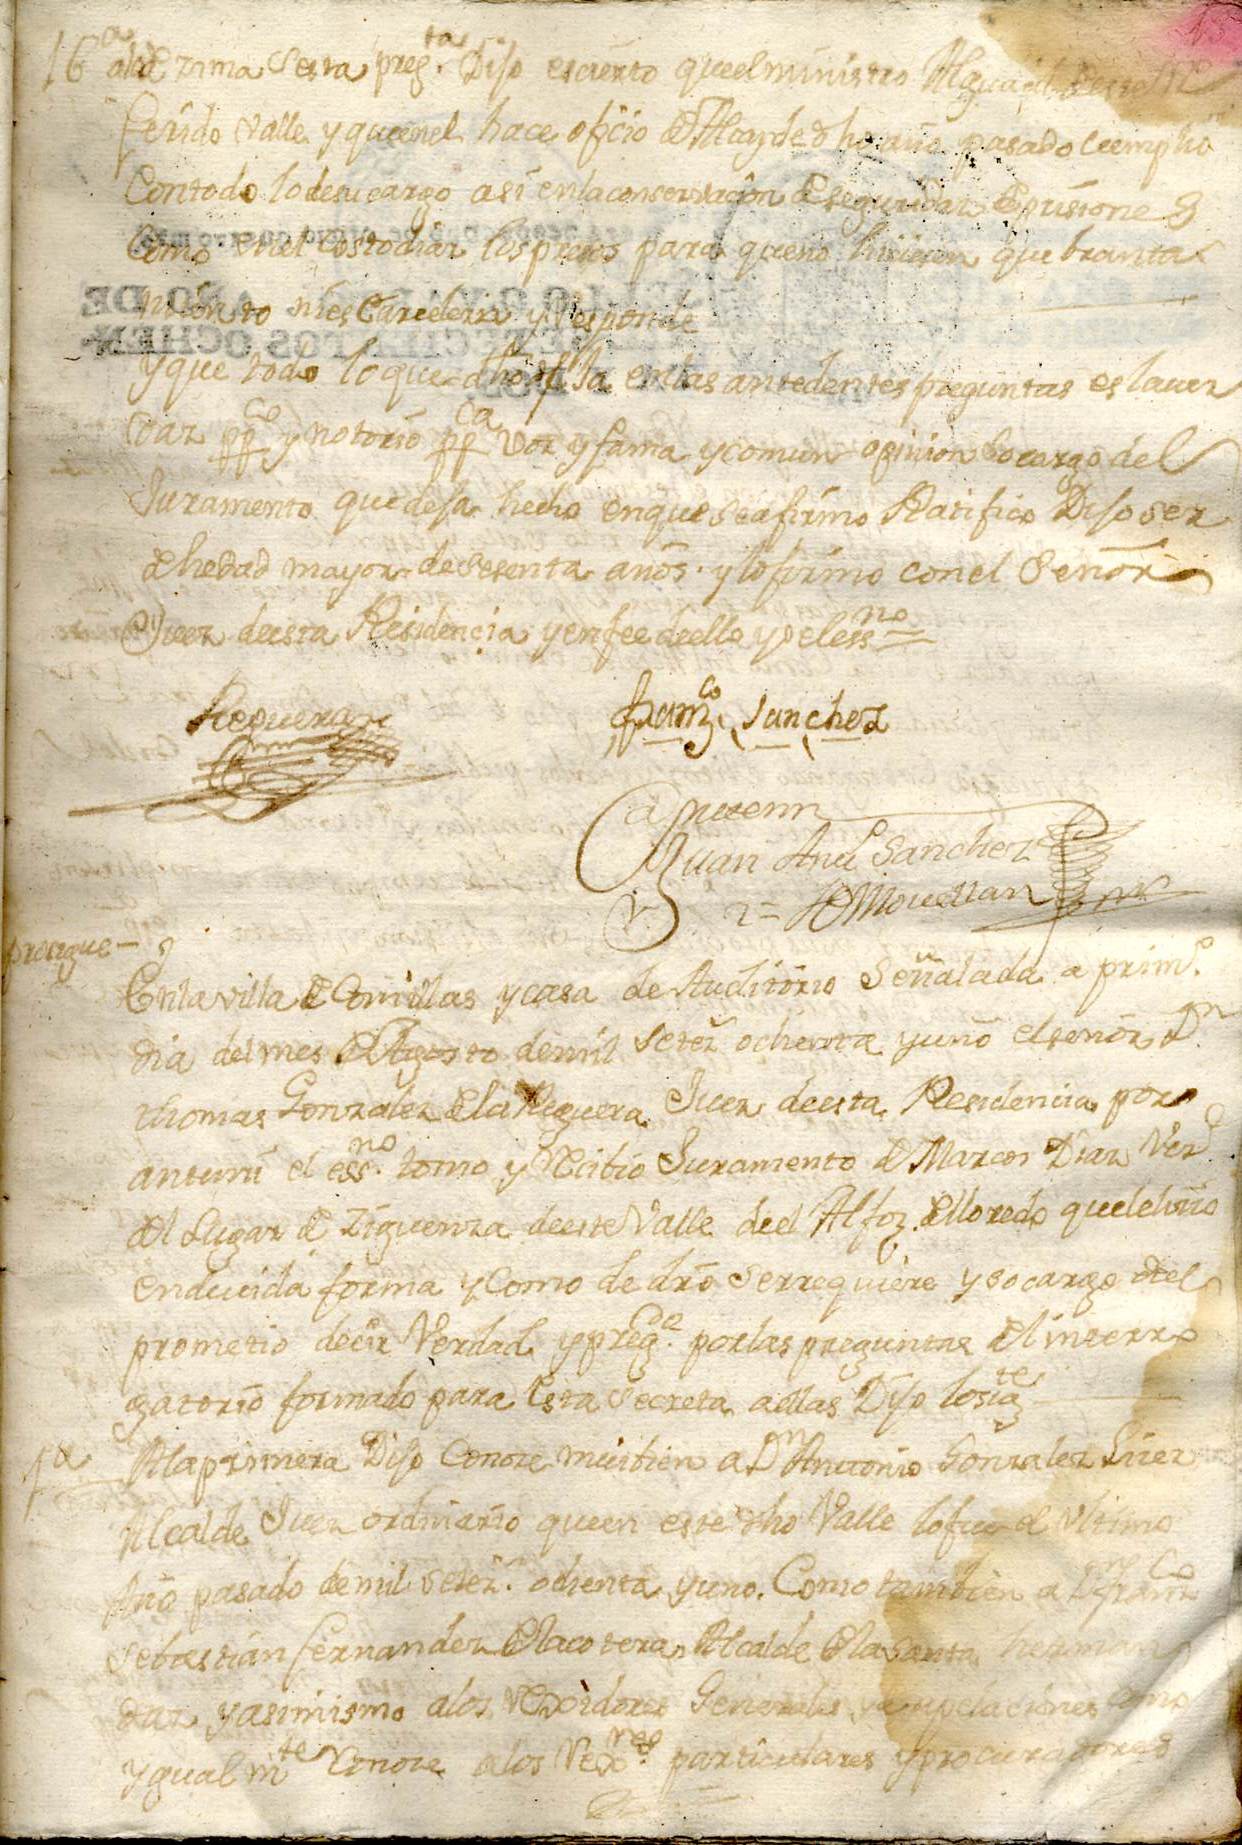 16ª alade zima sesta pregta. Dijo escierto queelministro Alguacil
ferido Valle y queenel hace ofiçio de Alcayde dho año pasado
Contodo lodesucargo asi enlaconservazion de seguridaz de prisiones
Como enel Costodiar lospresos para queno hiziesen quebranta
miento nies Carzelera y responde
y que todo loque dho enlas antedentes preguntas es laver
daz ppco y notorio ppca voz y fama y comun opinion socargo del
Juramento que deja hecho enque seafirmo Ratifico Dijo ser
de hedad mayor de sesenta años. y lofirmo conel Señor
Juez deesta Residencia y enfee deello yo eless.no =
Reguera
Franco Sanchez
Antemi
Juan Ands Sanchez
de Movellan
prosigue
Enla villa de Comillas y casa de Auditorio Señalada a prim.º
dia delmes de Agosto demil setez ochenta y uno elseñor Dn.
thomas Gonzalez de la Reguera Juez deesta Residencia por
antemi el essno. tomo y Recibio Juramento de Marcos Diaz Vez.º
del Lugar de Ziguenza deeste Valle deel Alfoz de lloredo quelehizo
enduvida forma y Como de dro serrequiere y socargo del
prometio decir Verdad y pregdo. porlas preguntas del interro
gatorio formado para esta secreta aellas Dijo losigte
1ª Alaprimera Dijo Conoze muibien a Dn Antonio Gonzalez
Alcalde Juez ordinario queen este dho Valle lofue el ultimo
Año pasado demil setez. ochenta yuno. Como tambien a Dn Franco
sebastian fernandez de lacotera Alcalde de lasanta herman
daz y asimismo alos Rexidores Generales
y gualmte Conoze alos Rexres. particulares y procuradores